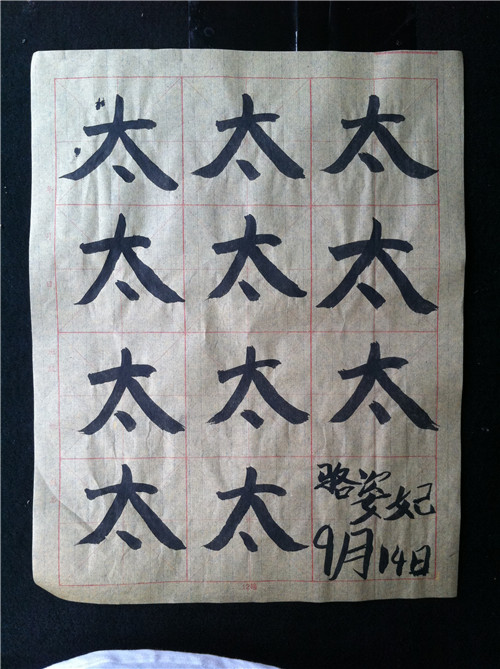 太太太
太太太
太太太
太太
骆姿妃
9月14日